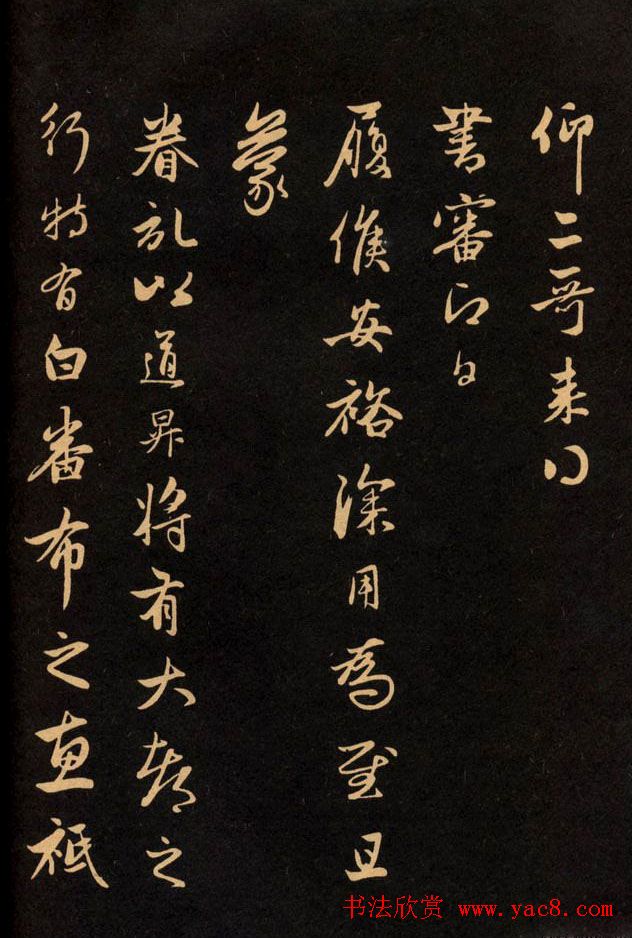 仰二哥来问
書審即日
履候安裕深用為慰且
蒙
眷記以道昇將有大都之
行特有白番布之惠祗
书法欣赏 www.yac8.com